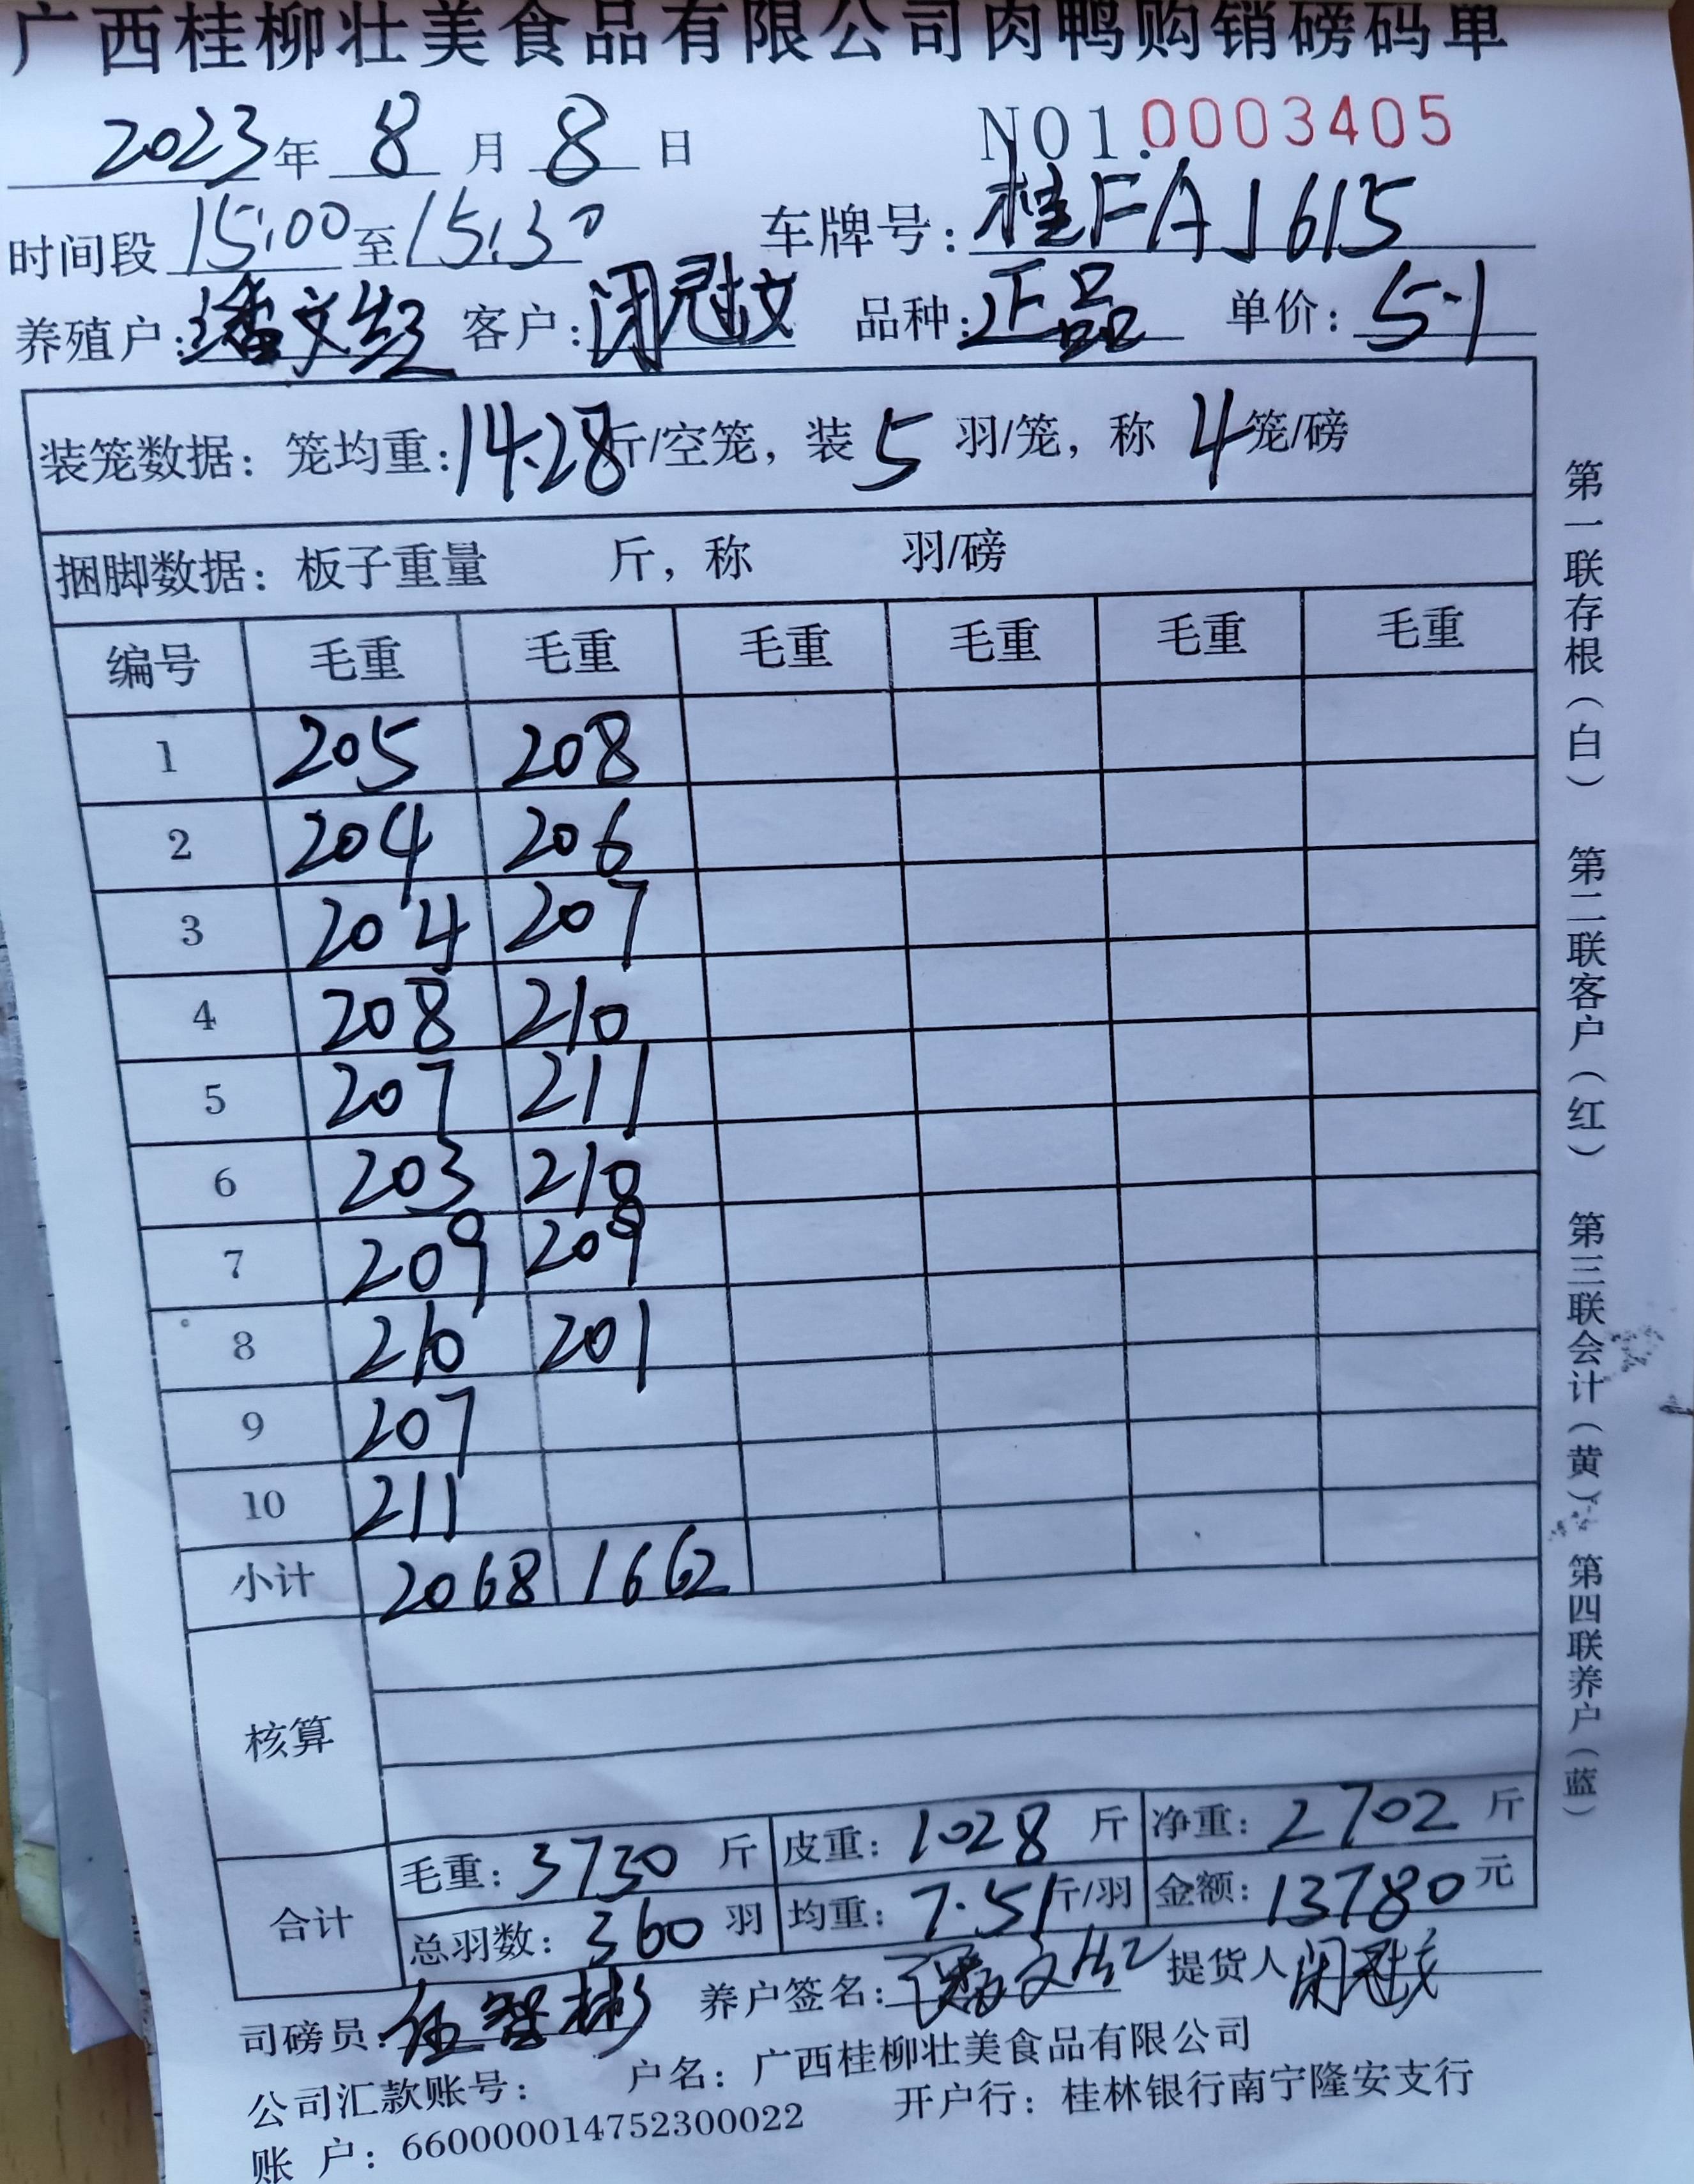 广西桂柳壮美食品有限公司肉鸭购销磅码单
2023年 8 月 8 日 NO1.0003405
时间段 15:00 至 15:30 车牌号: 桂FAJ615
养殖户: 潘文 客户: 闭冠文 品种: 正品 单价: 5.1
装笼数据: 笼均重: 14.28斤/空笼, 装 5 羽/笼, 称 4笼/磅
捆脚数据: 板子重量 斤, 称 羽/磅
编号 毛重 毛重 毛重 毛重 毛重 毛重
1 205 208
2 204 206
3 204 207
4 208 210
5 207 211
6 203 210
7 209 209
8 210 201
9 207
10 211
小计 2068 1662
核算
合计
毛重: 3730 斤 皮重: 1028 斤 净重: 2702 斤
总羽数: 360 羽 均重: 7.51斤/羽 金额: 13780元
司磅员: 伍智彬 养户签名: 潘文 提货人 闭冠文
公司汇款账号: 户名: 广西桂柳壮美食品有限公司
账 户: 660000014752300022 开户行: 桂林银行南宁隆安支行
第一联存根(白) 第二联客户(红) 第三联会计(黄) 第四联养户(蓝)